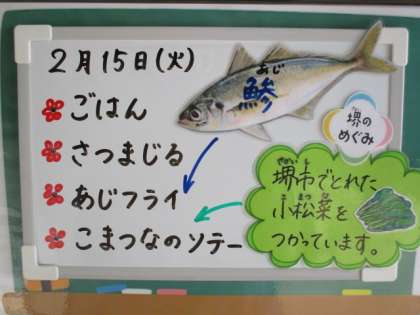 2月15日(火)
ごはん
さつまじる
あじフライ
こまつなのソテー
あじ
鯵
堺の
めぐみ
さかいし
堺市でとれた
こまつな
小松菜を
つかっています。